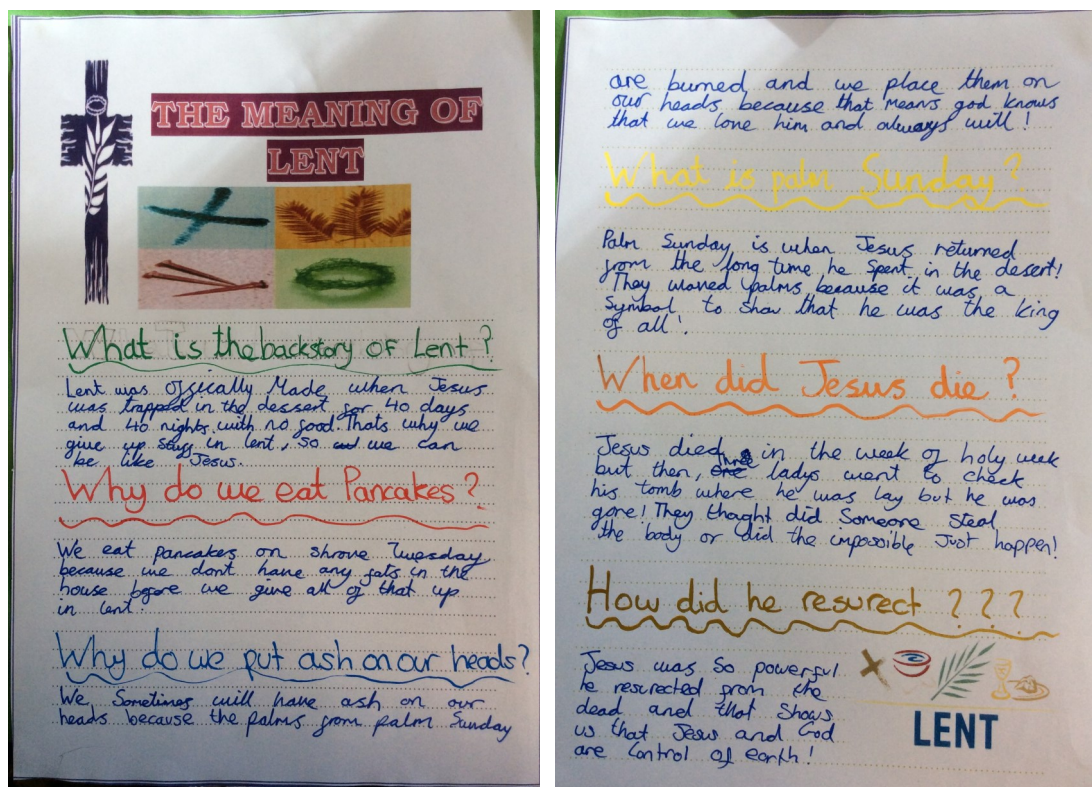 THE MEANING OF
LENT
What is the backstory of Lent?
Lent was offically Made when Jesus
was trapped in the dessert for 40 days
and 40 nights with no food. Thats why we
give up stuff in lent, so we can
be like Jesus.
Why do we eat Pancakes?
We eat pancakes on shrove Tuesday
because we don't have any fats in the
house before we give all of that up
in lent.
Why do we put ash on our heads?
We Sometimes will have ash on our
heads because the palms from palm Sunday
are burned and we place them on
our heads because that means god knows
that we love him and always will!
What is palm Sunday?
Palm Sunday is when Jesus returned
from the long time he spent in the desert!
They waved palms because it was a
symbol to show that he was the king
of all!
When did Jesus die?
Jesus died in the week of holy week
but then, three ladys went to check
his tomb where he was lay but he was
gone! They thought did Someone steal
the body or did the impossible Just happen!
How did he resurect ???
Jesus was so powerful
he resurected from the
dead and that Shows
us that Jesus and God
are control of earth!
LENT